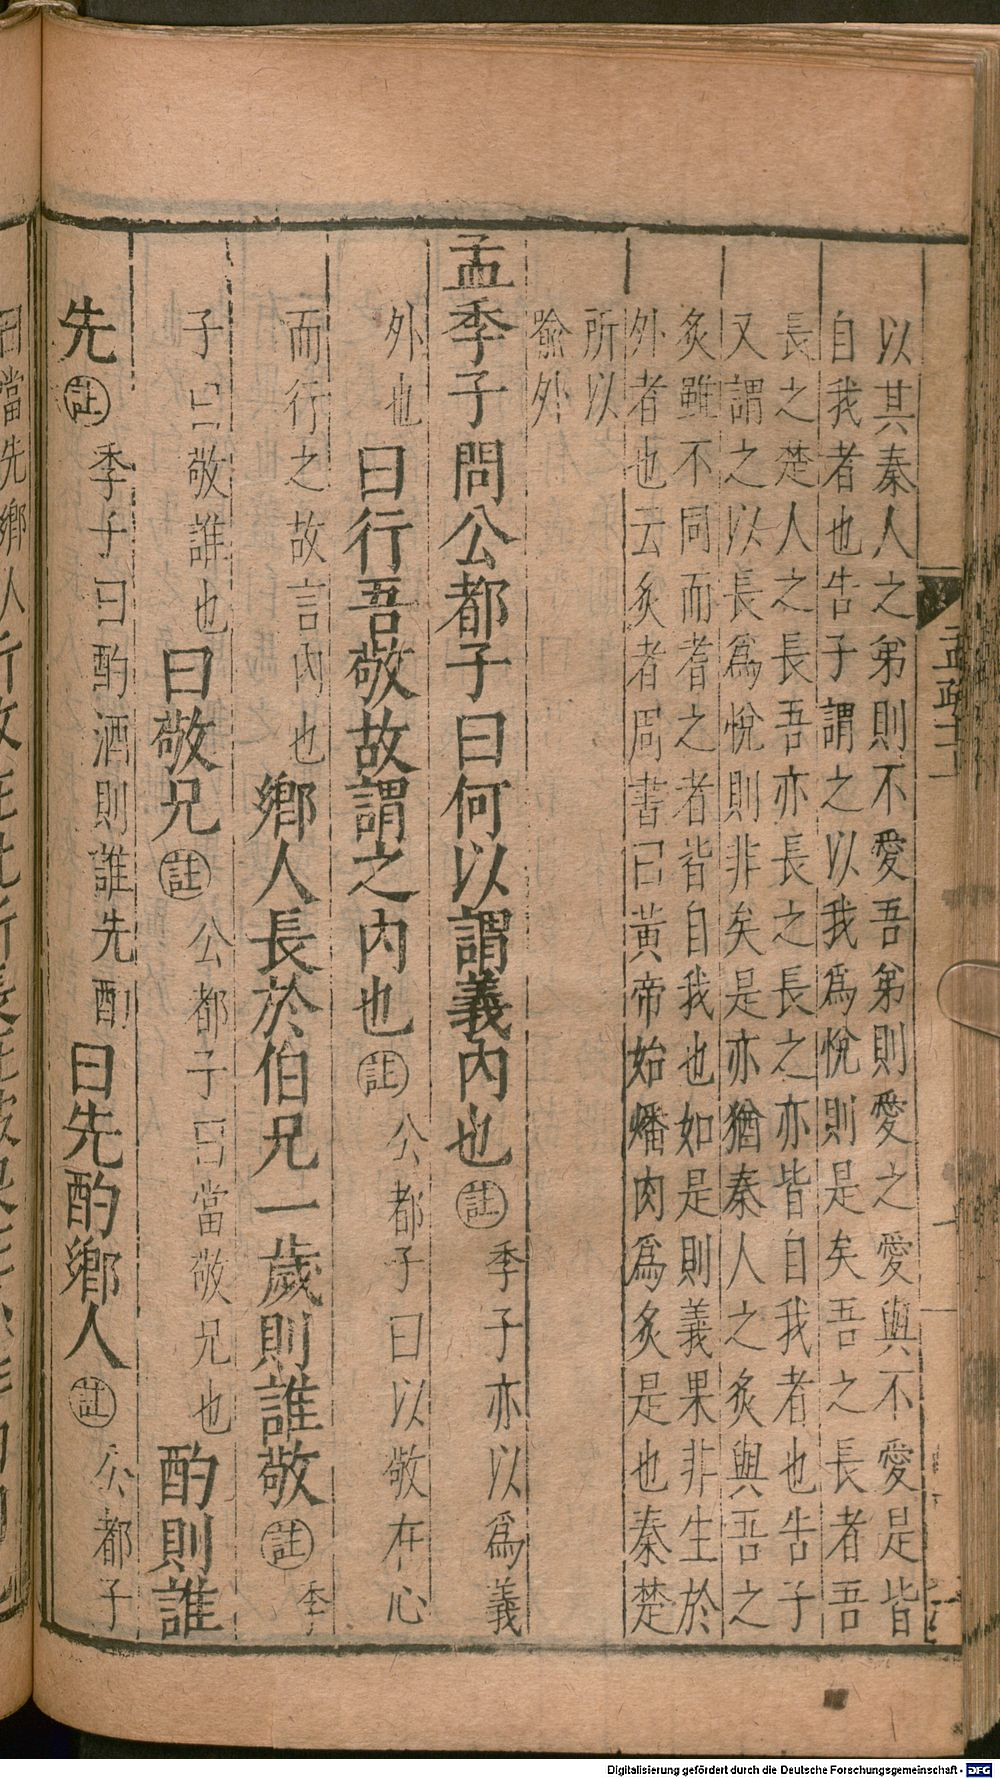 以其秦人之弟則不愛吾弟則愛之愛與不愛是皆
自我者也告子謂之以我爲悅則是矣吾之長者吾
長之楚人之長吾亦長之長之亦皆自我者也告子
又謂之以長爲悅則非矣是亦猶秦人之炙與吾之
炙雖不同而耆之者皆自我也如是則義果非生於
外者也云炙者周書曰黃帝始燔肉爲炙是也秦楚
所以
喻外
孟季子問公都子曰何以謂義內也註季子亦以爲義
外也曰行吾敬故謂之內也註公都子曰以敬在心
而行之故言內也鄉人長於伯兄一歲則誰敬註季
子曰敬誰也曰敬兄註公都子曰當敬兄也酌則誰
先註季子曰酌酒則誰先酌曰先酌鄉人註公都子
曰當先鄉人所敬在此所長在彼果在外非由內也
Digitalisierung gefördert durch die Deutsche Forschungsgemeinschaft - DFG